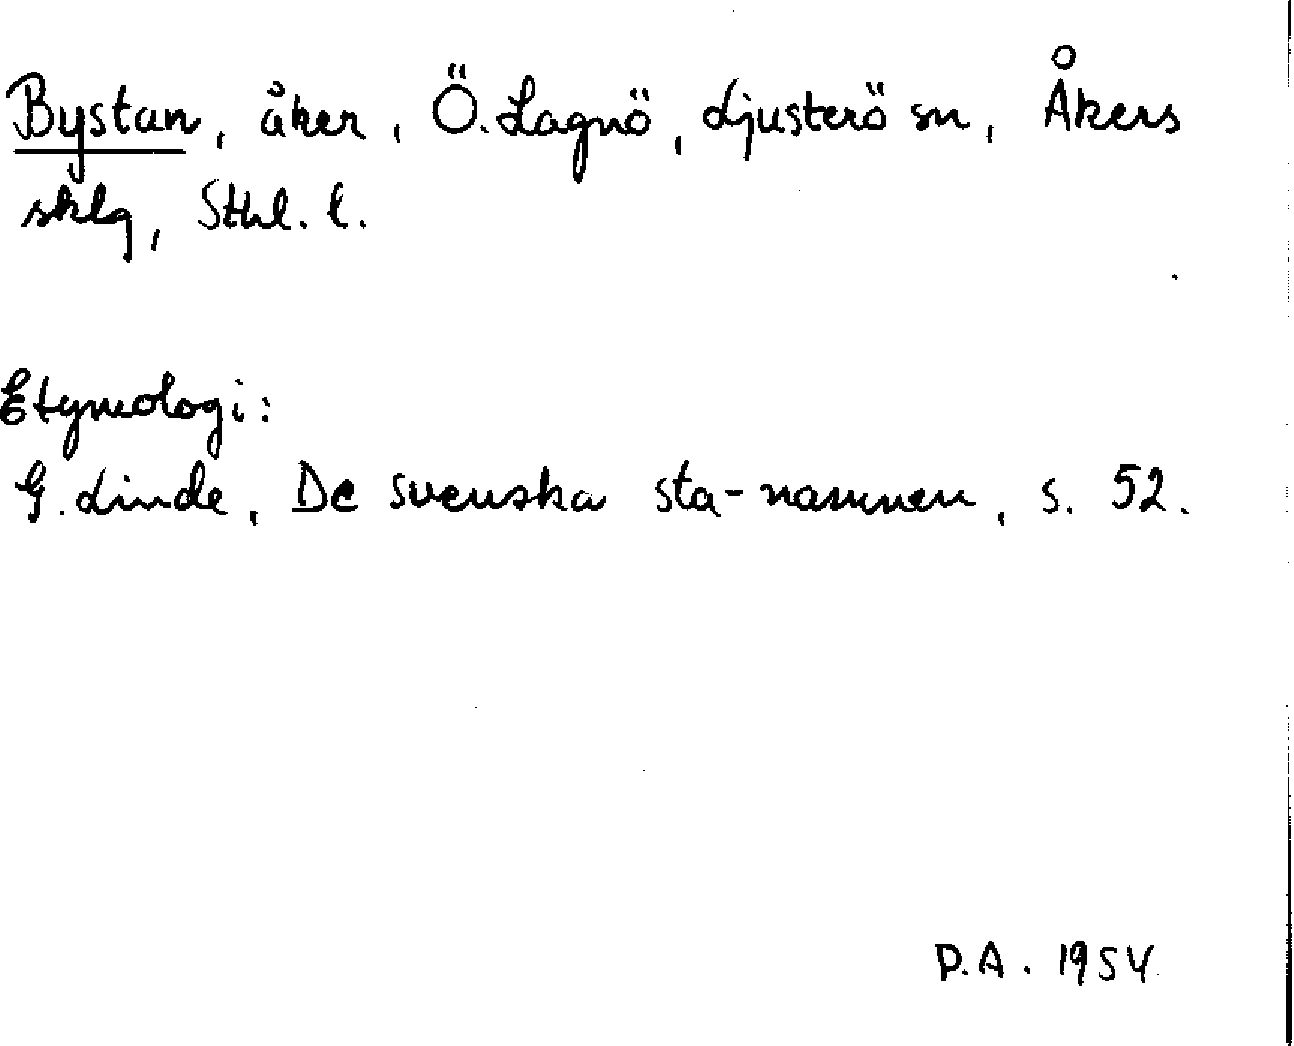 Bystan, åker, Ö. Lagnö, Ljusterö sn, Åkers
sklg, Sthl. l.
Etymologi:
G. Linde, De svenska sta-namnen, s. 52.
P.A. 1954